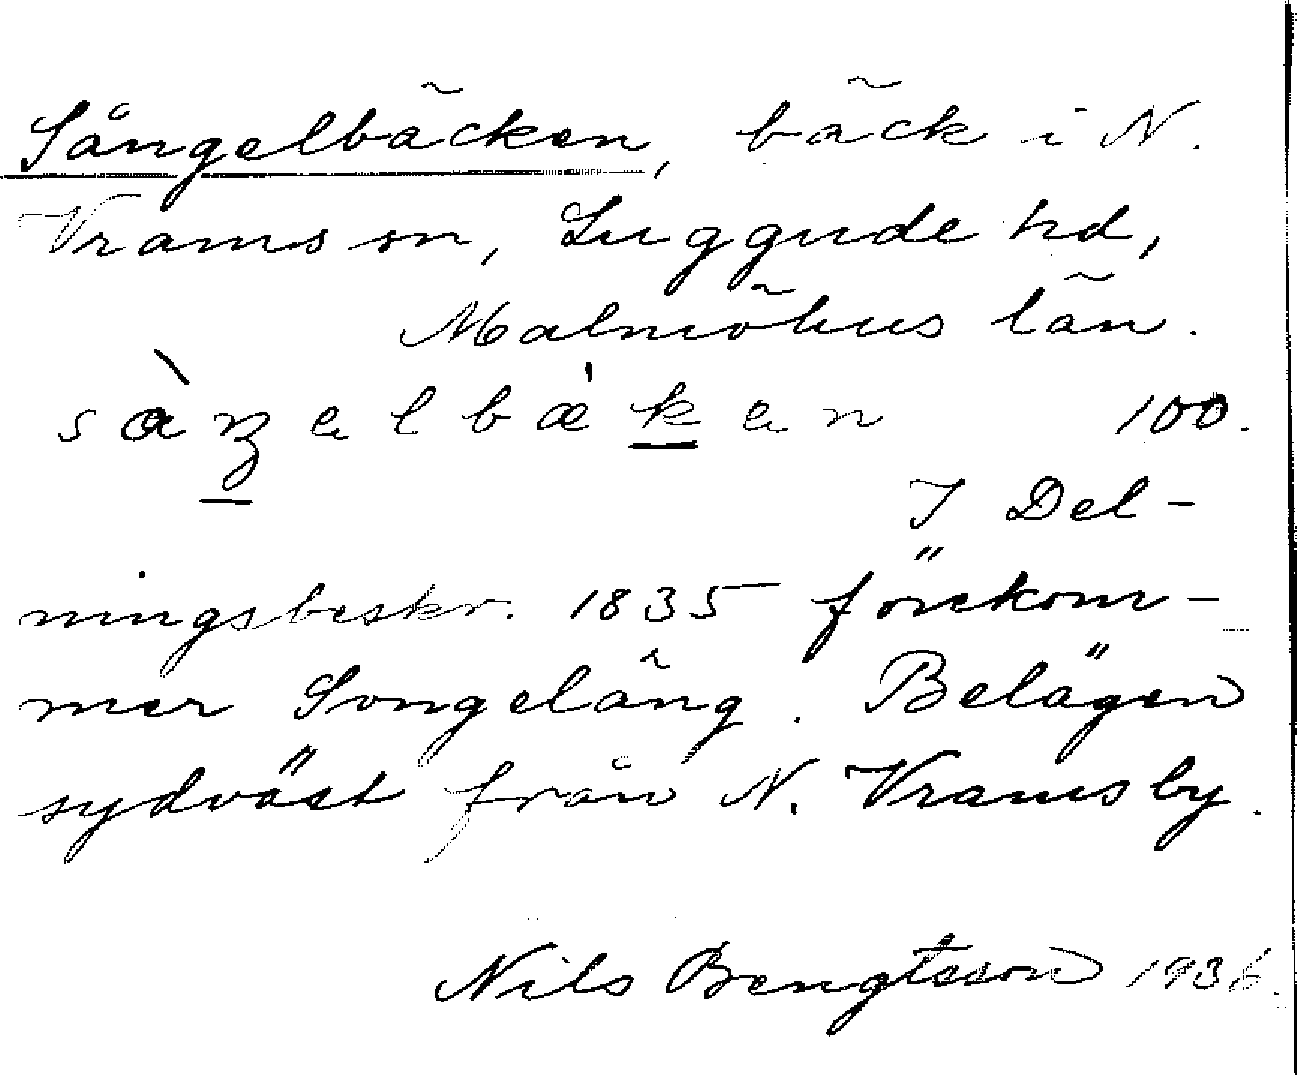 Sångelbäcken, bäck i N.
Vrams sn, Luggude hd,
Malmöhus län.
100.
I Del-
ningsbeskr. 1835 förekom-
mer Songeläng. Belägen
sydväst från N. Vrams by.
Nils Bengtsson 1936.